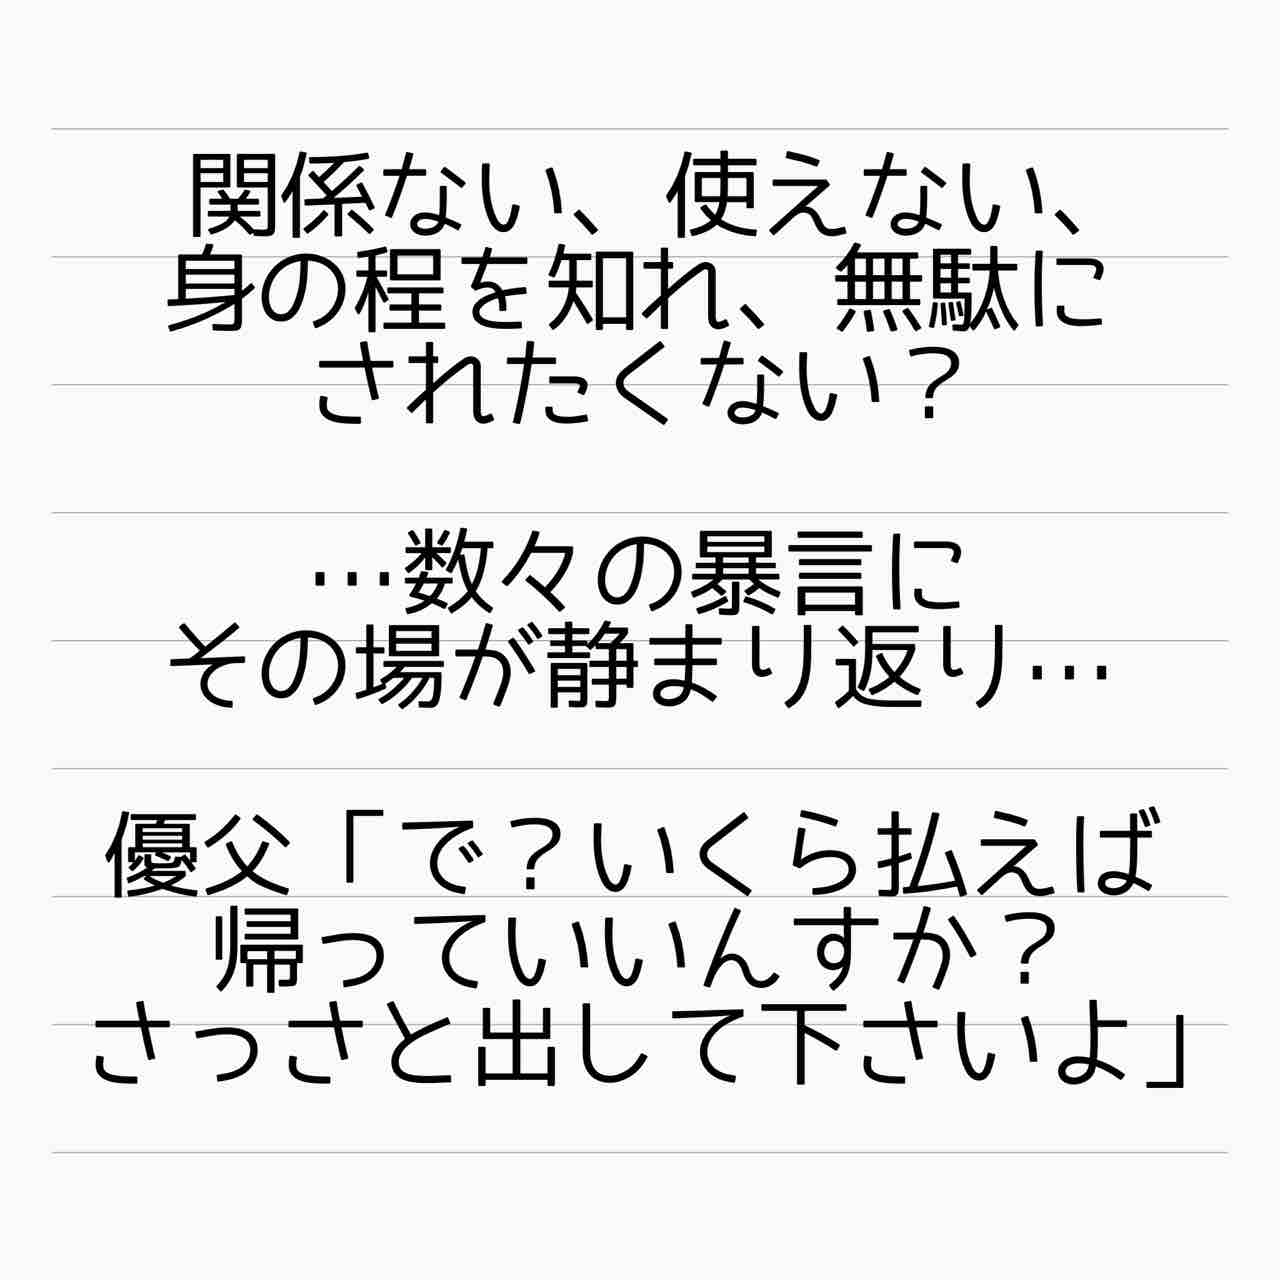 関係ない、使えない、
身の程を知れ、無駄に
されたくない？
…数々の暴言に
その場が静まり返り…
優父「で？いくら払えば
帰っていいんすか？
さっさと出して下さいよ」